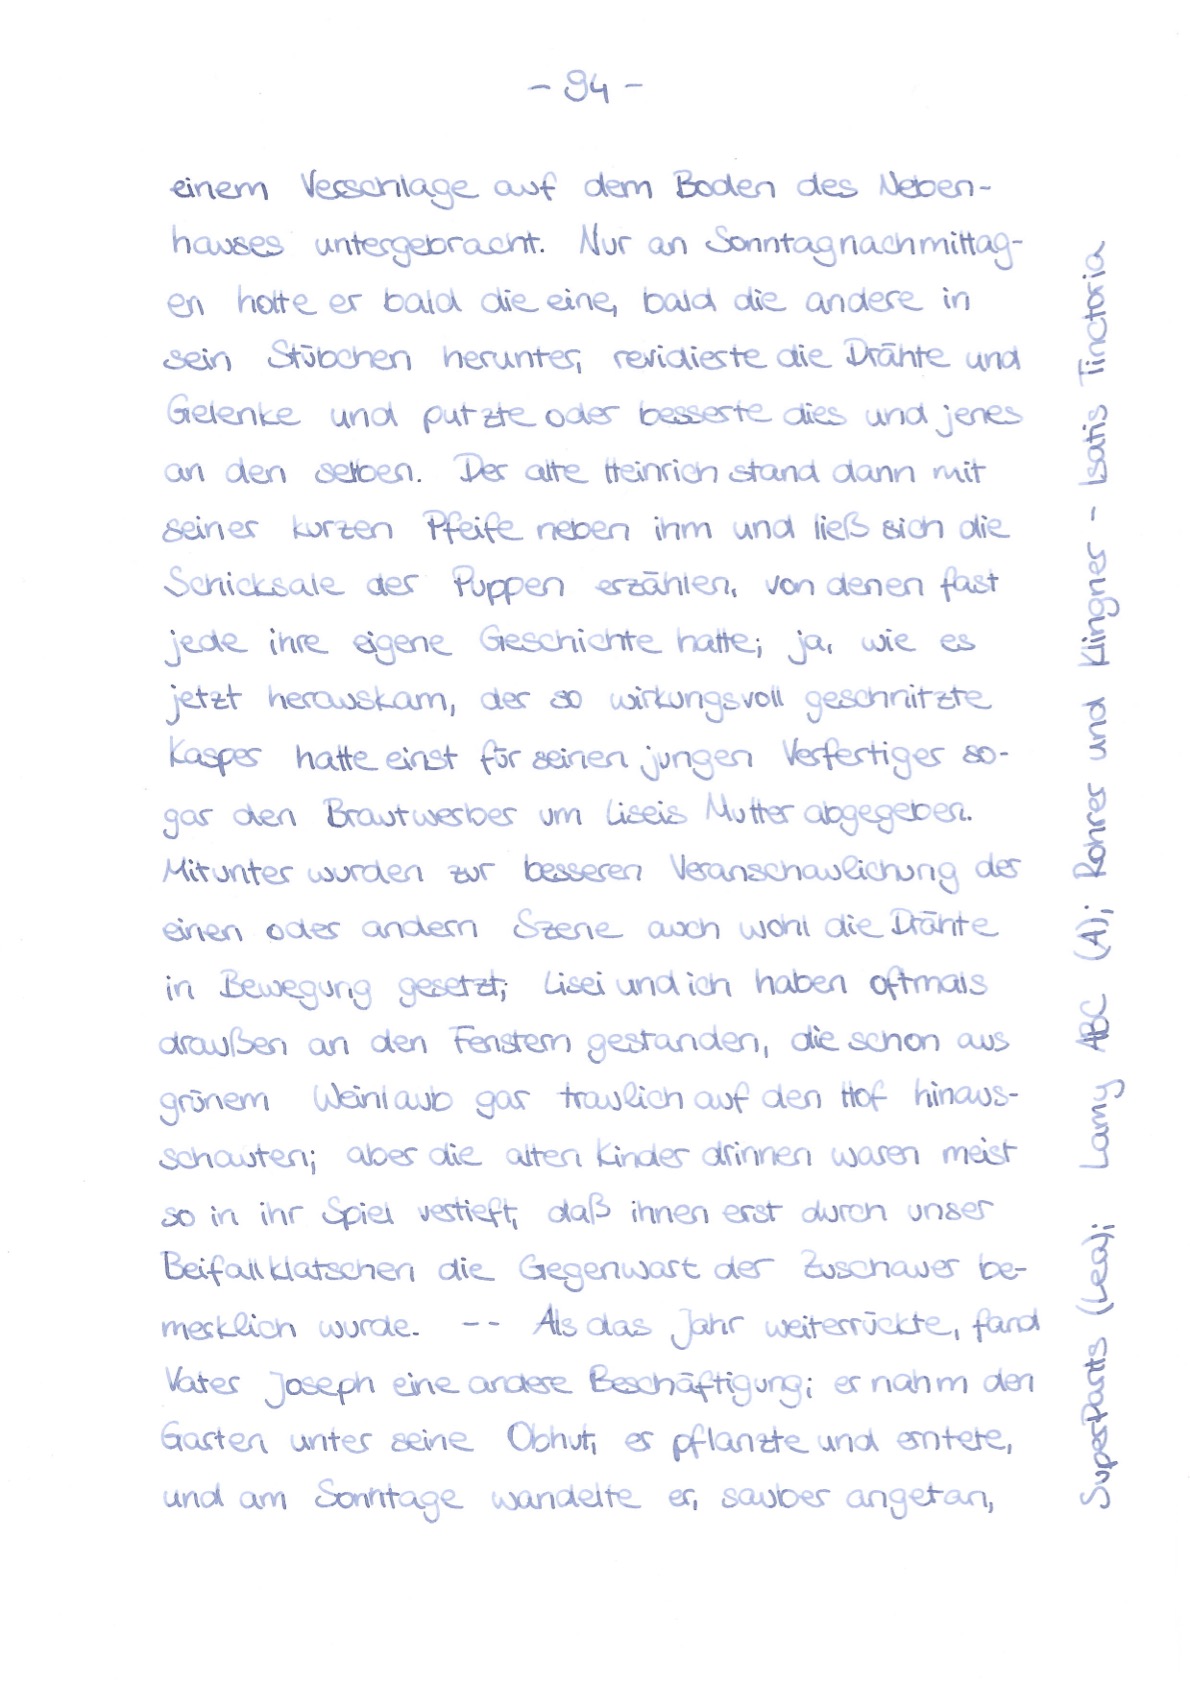 - 94 -
einem Verschlage auf dem Boden des Neben-
hauses untergebracht. Nur an Sonntagnachmittag-
en holte er bald die eine, bald die andere in
sein Stübchen herunter, revidierte die Drähte und
Gelenke und putzte oder besserte dies und jenes
an den selben. Der alte Heinrich stand dann mit
seiner kurzen Pfeife neben ihm und ließ sich die
Schicksale der Puppen erzählen, von denen fast
jede ihre eigene Geschichte hatte; ja, wie es
jetzt herauskam, der so wirkungsvoll geschnitzte
Kasper hatte einst für seinen jungen Verfertiger so-
gar den Brautwerber um Liseis Mutter abgegeben.
Mitunter wurden zur besseren Veranschaulichung der
einen oder andern Szene auch wohl die Drähte
in Bewegung gesetzt; Lisei und ich haben oftmals
draußen an den Fenstern gestanden, die schon aus
grünem Weinlaub gar traulich auf den Hof hinaus-
schauten; aber die alten Kinder drinnen waren meist
so in ihr Spiel vertieft, daß ihnen erst durch unser
Beifallklatschen die Gegenwart der Zuschauer be-
merklich wurde. -- Als das Jahr weiterrückte, fand
Vater Joseph eine andere Beschäftigung; er nahm den
Garten unter seine Obhut, er pflanzte und erntete,
und am Sonntage wandelte er, sauber angetan,
SuperPantts (Lea); Lamy ABC (A); Rohrer und Klingner - Isatis Tinctoria